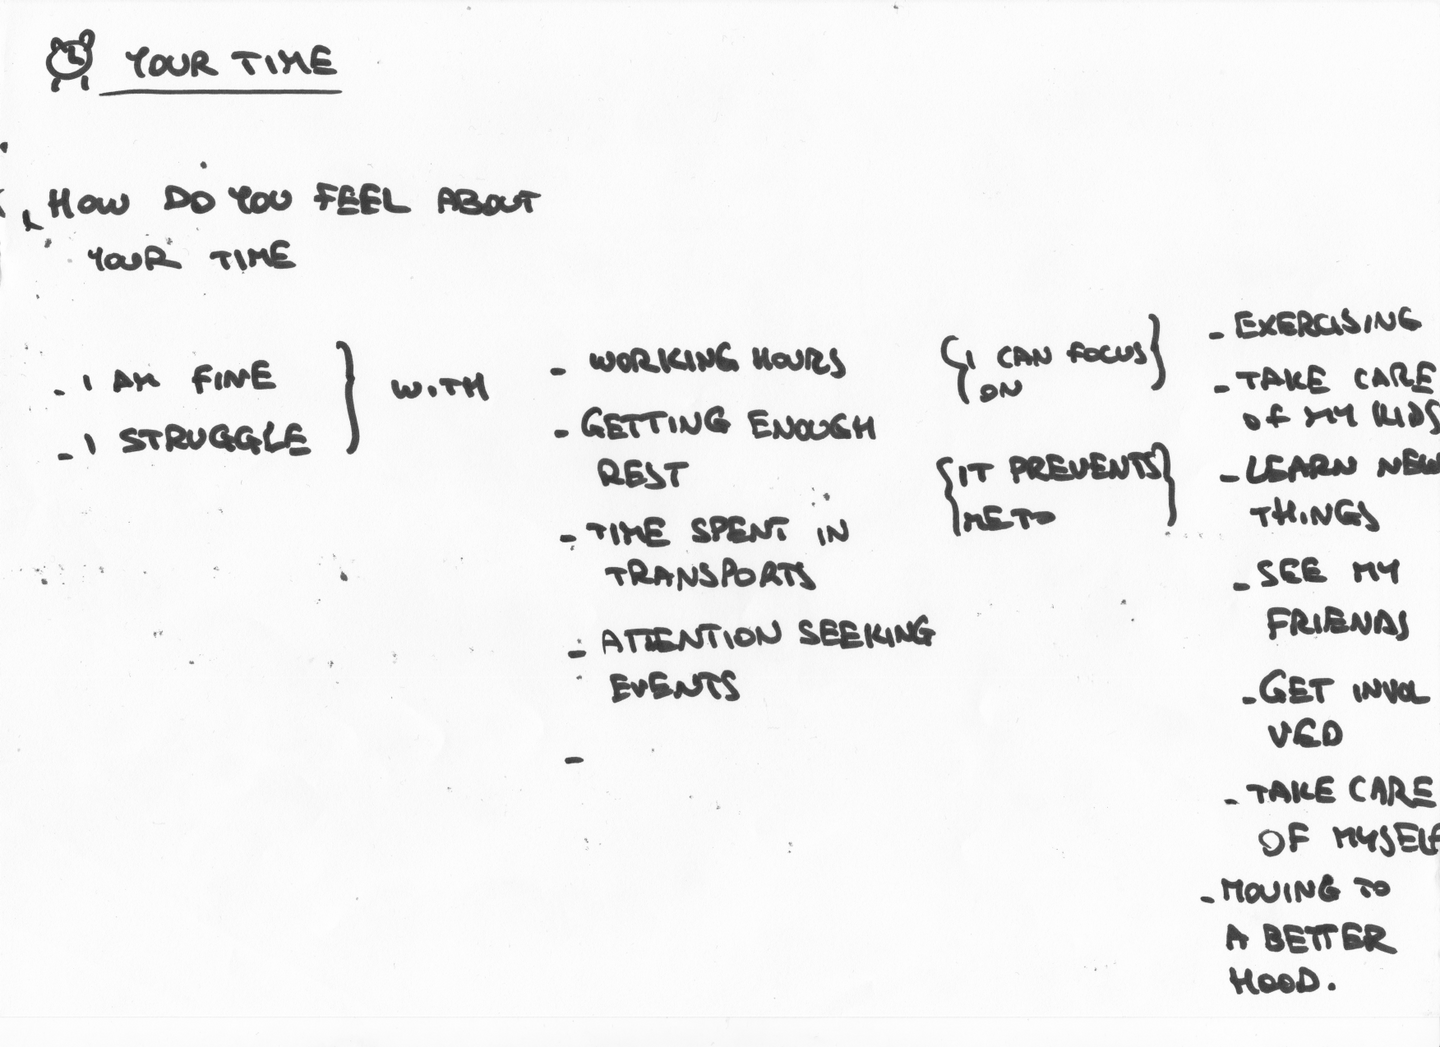 YOUR TIME
HOW DO YOU FEEL ABOUT
YOUR TIME
- I AM FINE
- I STRUGGLE
WITH
- WORKING HOURS
- GETTING ENOUGH
REST
- TIME SPENT IN
TRANSPORTS
- ATTENTION SEEKING
EVENTS
-
I CAN FOCUS
ON
IT PREVENTS
ME TO
- EXERCISING
- TAKE CARE
OF MY KIDS
- LEARN NEW
THINGS
- SEE MY
FRIENDS
- GET INVOL
VED
- TAKE CARE
OF MYSELF
- MOVING TO
A BETTER
MOOD.